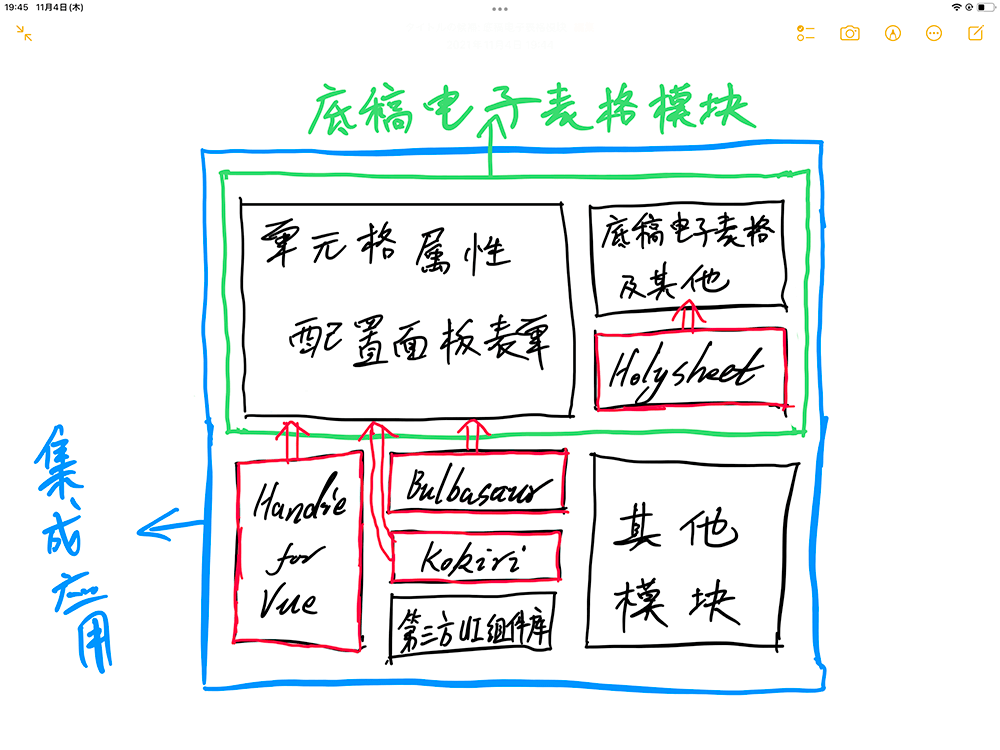 19:45 11月4日(木)
底稿电子表格模块
单元格属性
配置面板表单
底稿电子表格
及其他
Holysheet
集成应用
Handie
for
Vue
Bulbasaur
Kokiri
第三方UI组件库
其他
模块